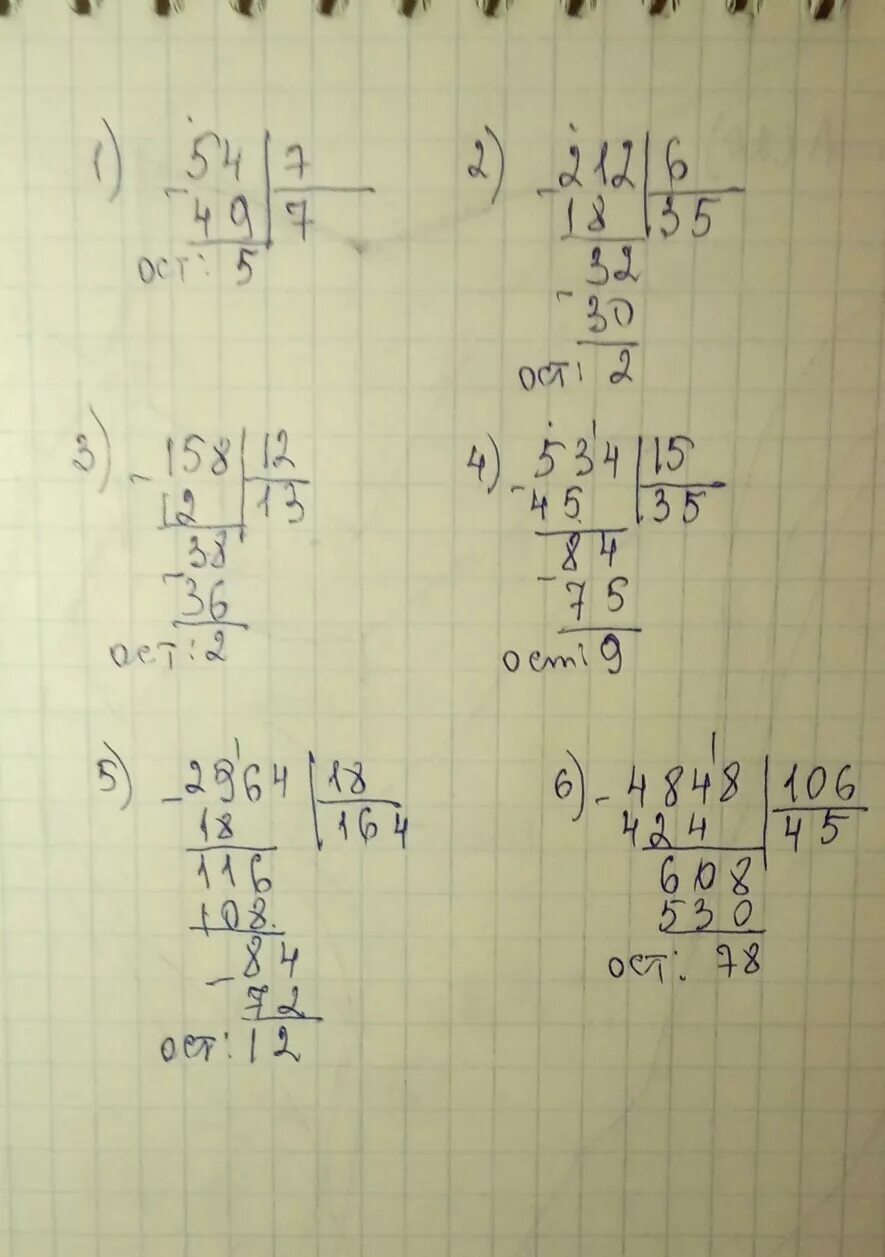 1) - 54 | 7
49 | 7
ост: 5
2) - 212 | 6
18 | 35
32
- 30
ост: 2
3) - 158 | 12
12 | 13
- 38
36
ост: 2
4) - 534 | 15
45 | 35
- 84
75
ост: 9
5) - 2964 | 18
18 | 164
116
108
- 84
72
ост: 12
6) - 4848 | 106
424 | 45
608
530
ост: 78